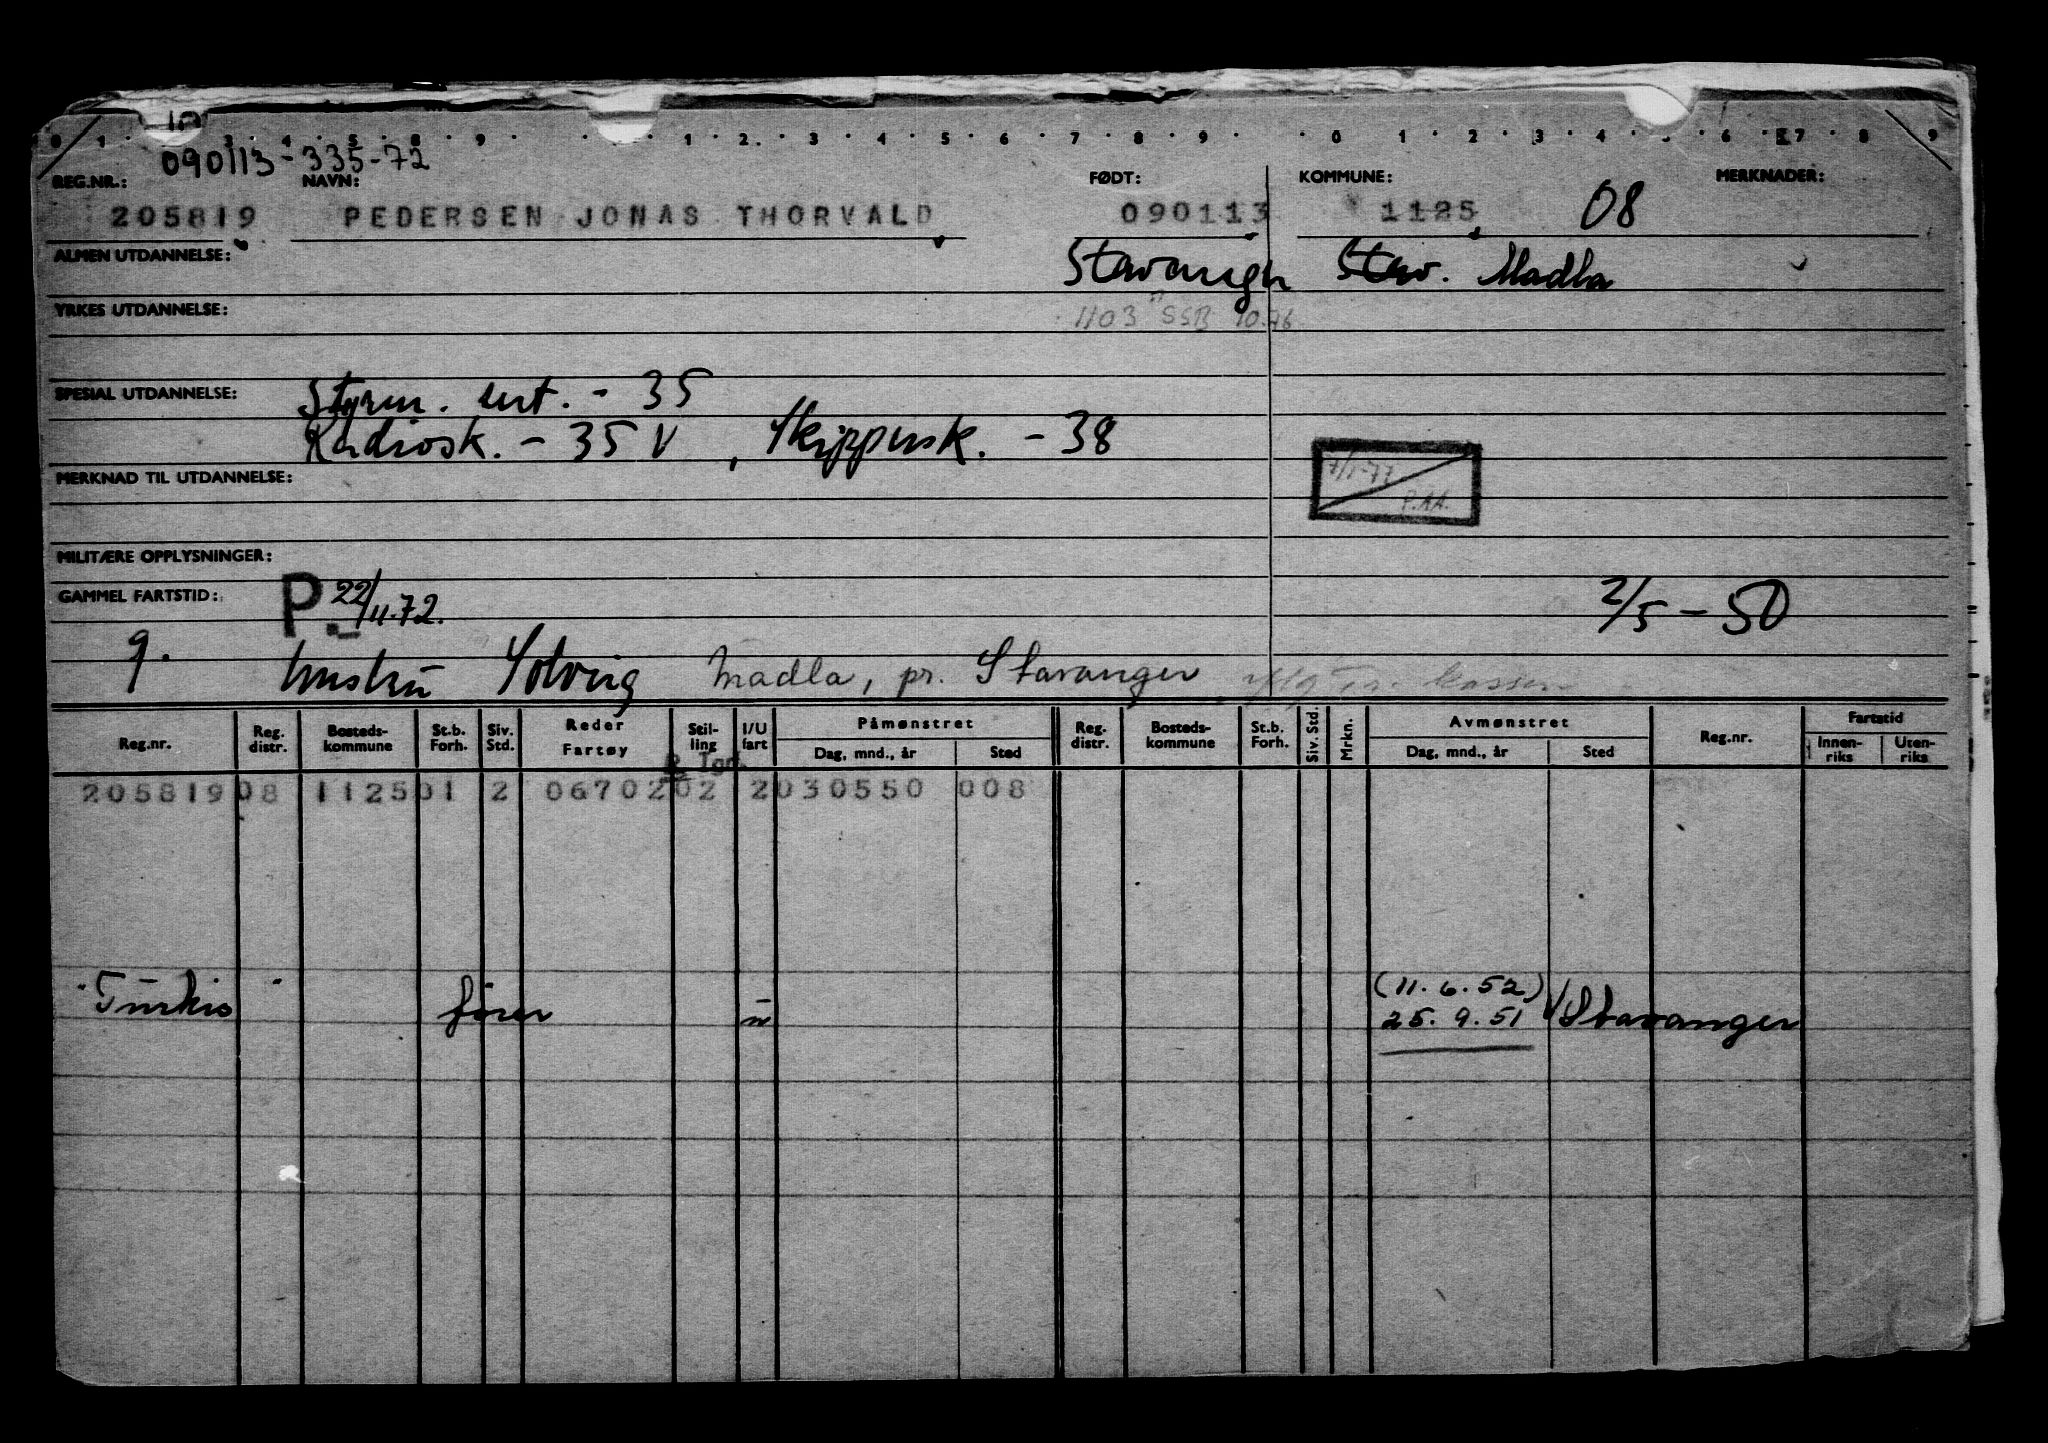 0 1 3 4 5 8 9 1 2 3 4 5 6 7 8 9 0 1 2 3 4 6 7 8 9
090113-335-72
REG.NR.: NAVN: FØDT: KOMMUNE: MERKNADER:
205819 PEDERSEN JONAS THORVALD 090113 1125 08
ALMEN UTDANNELSE: Stavanger Stav. Madla
YRKES UTDANNELSE: 1103 SSB 10.76
SPESIAL UTDANNELSE: Styrm. sert. - 35
Radiosk. - 35 V, Skippersk. - 38
7/1-77
P.AA.
MERKNAD TIL UTDANNELSE:
MILITÆRE OPPLYSNINGER:
GAMMEL FARTSTID: P. 22/11.72. 2/5-50
g. hustru Solveig Madla, pr. Stavanger
Reg.nr. Reg. distr. Bosteds-kommune St.b. Forh. Siv. Std. Reder Fartøy Stil-ling I/U fart Påmønstret Dag, mnd., år Sted Reg. distr. Bosteds-kommune St.b. Forh. Siv. Std. Mrkn. Avmønstret Dag, mnd., år Sted Reg.nr. Fartstid Innen-riks Uten-riks
205819 08 1125 01 2 06702 02 2 030550 008
(11.6.52)
"Turkis" fører u 25.9.51 Stavanger